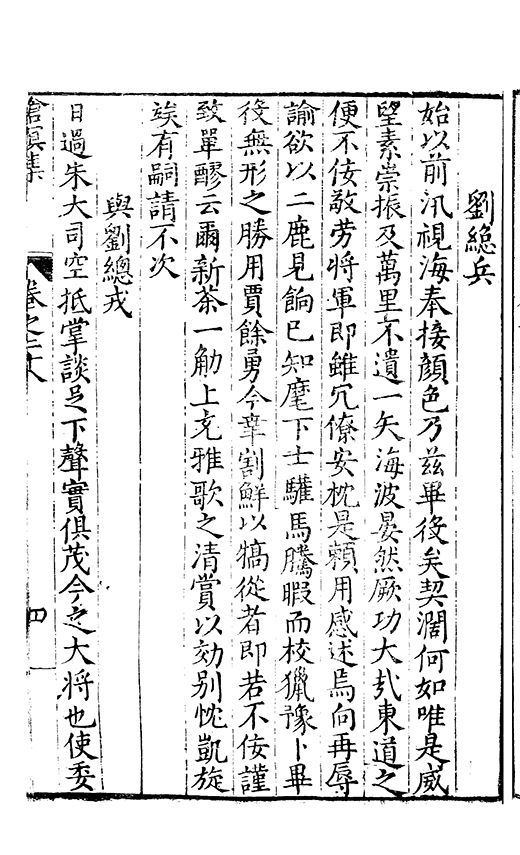 劉總兵
始以前汛視海奉接顏色乃茲畢役矣契濶何如唯是威
望素崇振及萬里不遺一矢海波晏然厥功大哉東道之
便不佞敢勞將軍即雖冗僚安枕是賴用感述焉向再辱
諭欲以二鹿見餉已知麾下士驩馬騰暇而校獵豫卜畢
後無形之勝用賈餘勇今葦割鮮以犒從者即若不佞謹
致單醪云爾新茶一觔上充雅歌之清賞以効別忱凱旋
竢有嗣請不次
與劉總戎
日過朱大司空抵掌談足下聲實俱茂今之大將也使委
滄溟集
卷之二十八
四